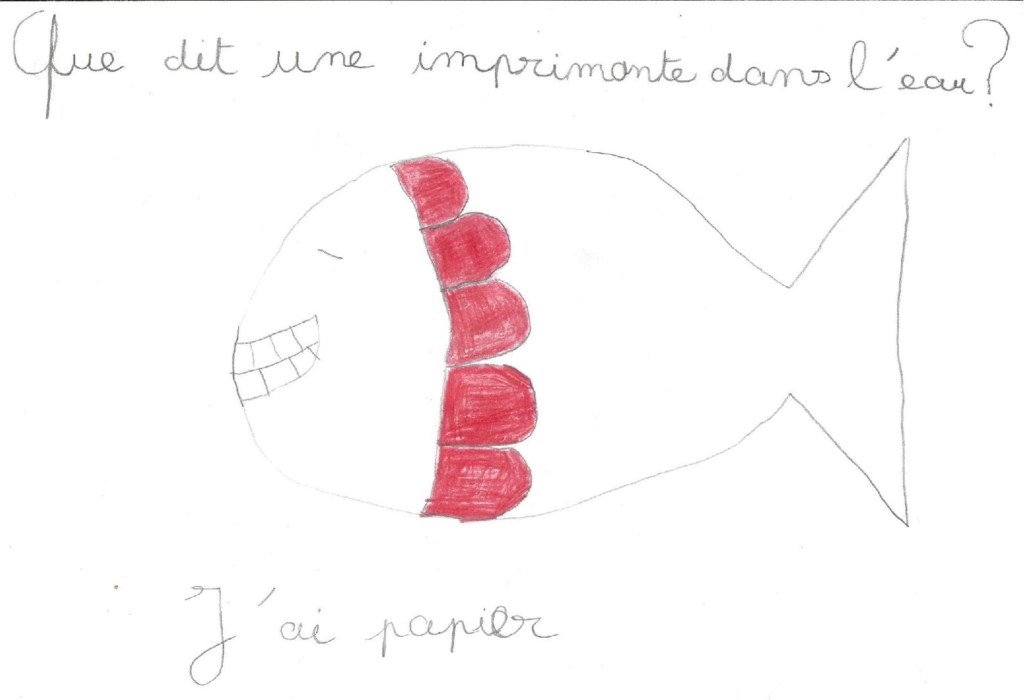 Que dit une imprimante dans l'eau?
J'ai papier